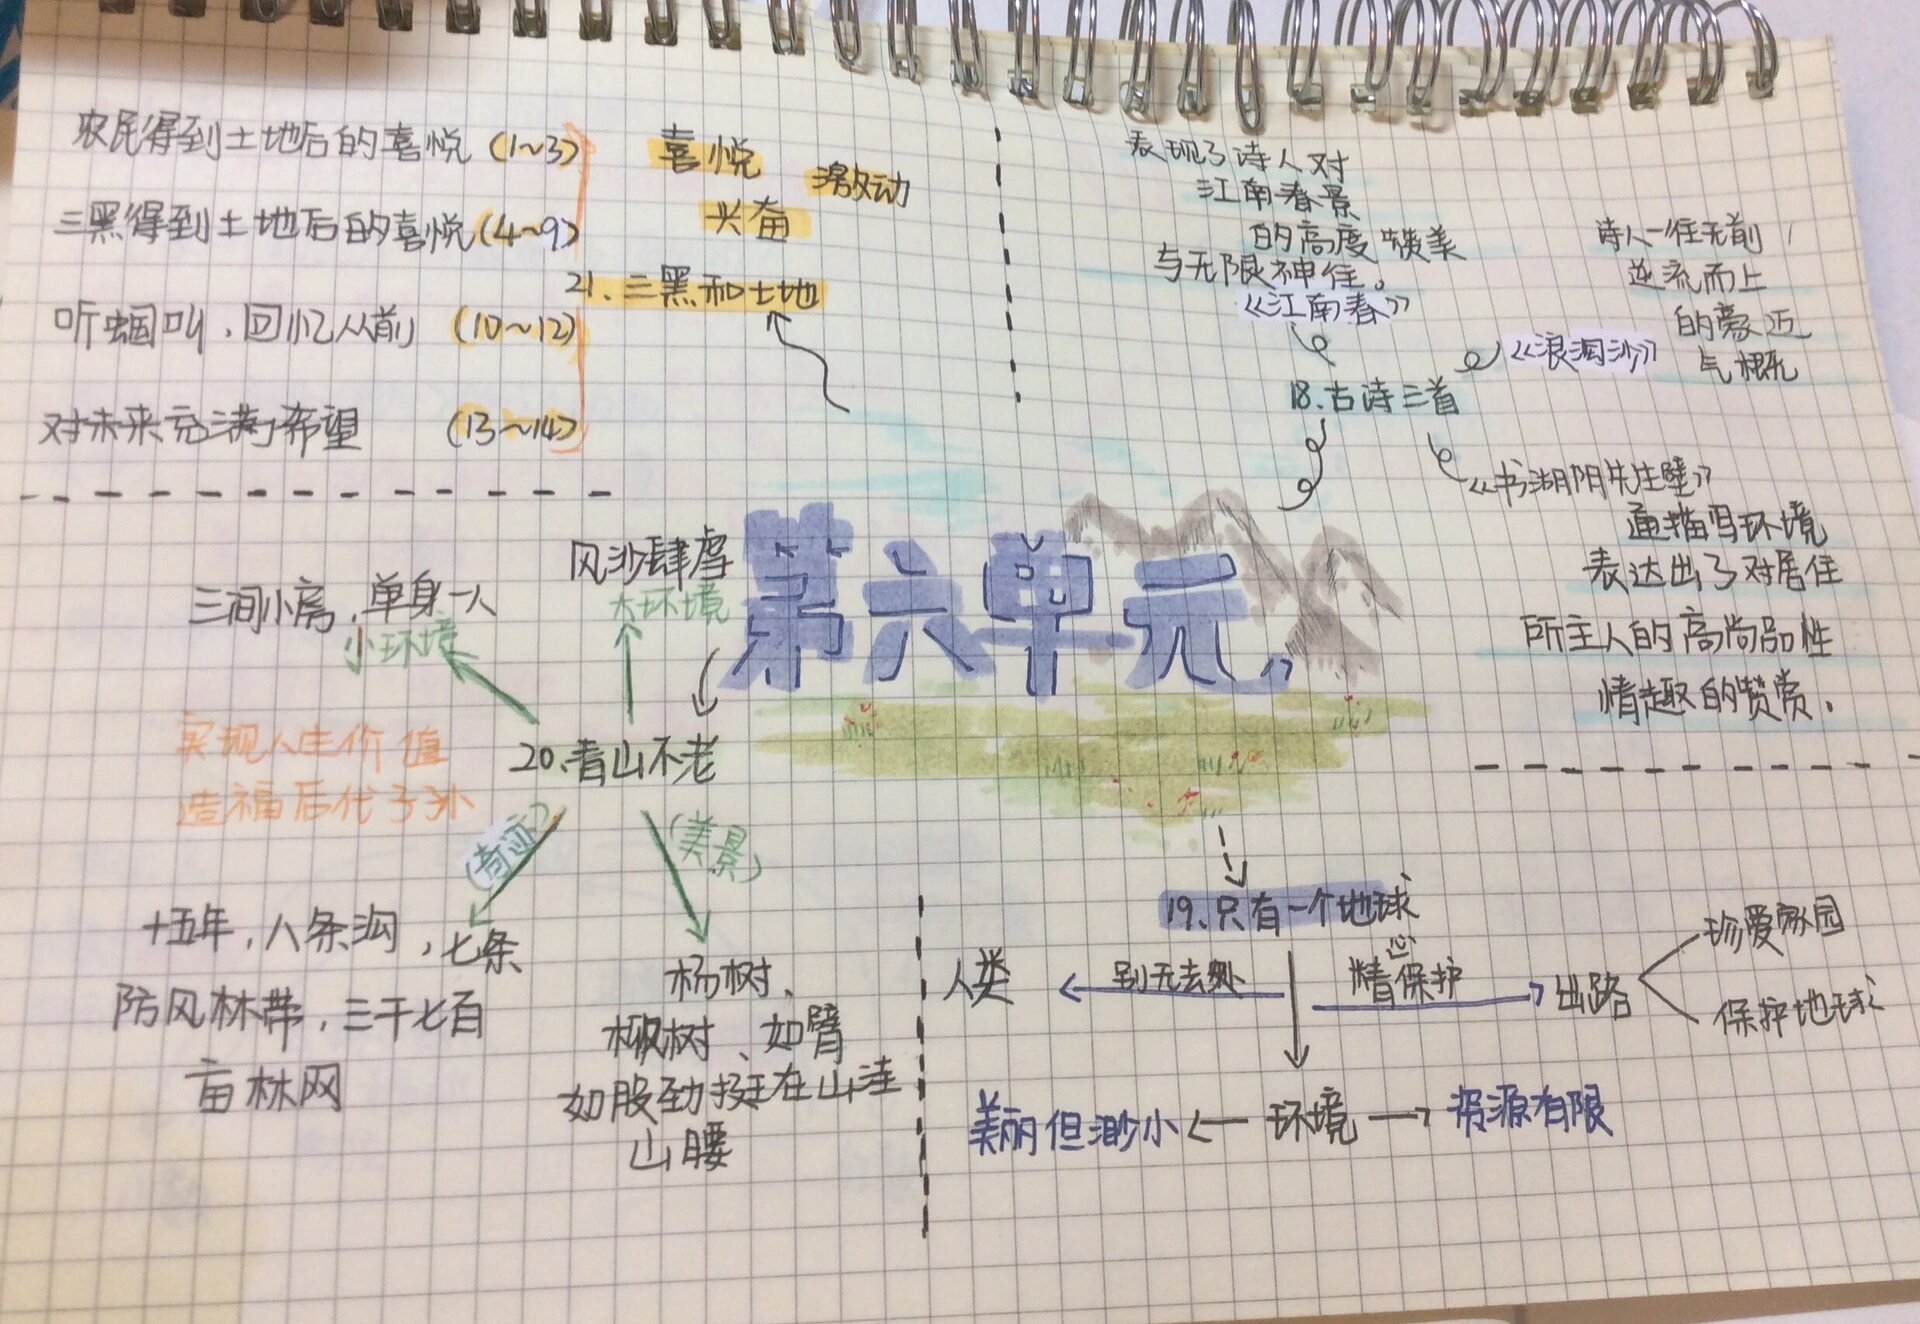 第六单元
农民得到土地后的喜悦（1~3）
三黑得到土地后的喜悦（4~9）
听蝈叫，回忆从前（10~12）
对未来充满了希望（13~14）
喜悦
激动
兴奋
21.三黑和土地
表现了诗人对
江南春景
的高度赞美
与无限神往。
《江南春》
18.古诗三首
诗人一往无前
逆流而上
的豪迈
气概
《浪淘沙》
《书湖阴先生壁》
通描写环境
表达出了对居住
所主人的高尚品性
情趣的赞赏.
风沙肆虐
大环境
三间小房，单身一人
小环境
20.青山不老
实现人生价值
造福后代子孙
（奇迹）
（美景）
十五年，八条沟，七条
防风林带，三千七百
亩林网
杨树、
柳树、如臂
如股劲挺在山洼
山腰
19.只有一个地球
人类
别无去处
精心保护
出路
珍爱家园
保护地球
美丽但渺小
环境
资源有限